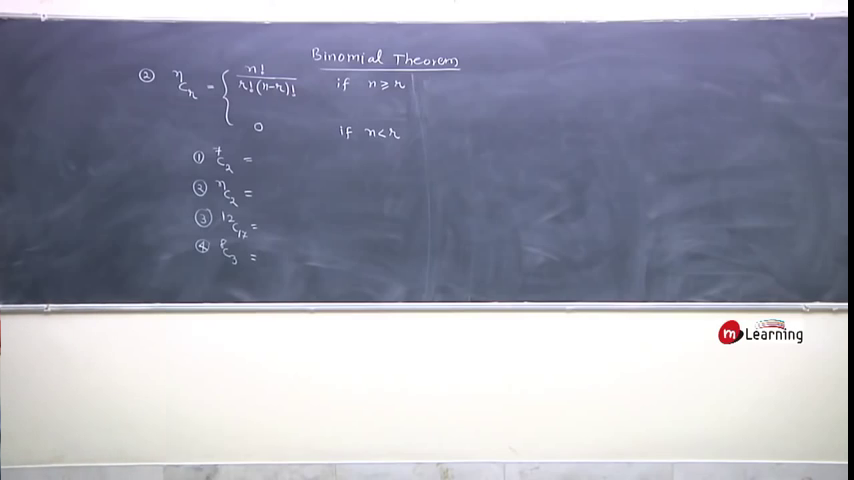 Binomial Theorem
② ⁿCᵣ = { n! / r!(n-r)! if n ≥ r
0 if n < r
① ⁷C₂ =
② ⁿC₂ =
③ ¹²C₁₇ =
④ ⁸C₃ =
m Learning